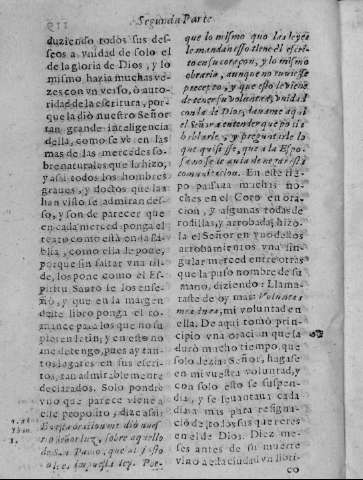 Segunda Parte
duziendo todos sus des-
seos a vnidad de solo el
de la gloria de Dios, y lo
mismo hazia muchas ve-
zes con vn verso, ò auto-
ridad de la escritura, por-
que la diò nuestro Señor
tan grande inteligencia
della, como se vè en las
mas de las mercedes so-
brenaturales que la hizo,
y assi todos los hombres
graues, y doctos que las
han visto se admiran des-
so, y son de parecer que
en cada merced ponga el
texto como està en la Bi-
blia, como ella le pone,
porque sin faltar vna til-
de, los pone como el Es-
piritu Santo se los ense-
ño, y que en la margen
deste libro ponga el ro-
mance para los que no su-
pieren latin; y en esto no
me detengo, pues ay tan-
tos lugares en sus escri-
tos, tan admirablemente
declarados. Solo pondre
vno que parece viene a
este proposito, dize assi:
Estando
ro Señor luz, sobre aquello
de San Pablo, que al justo
no le impuesta ley. Por-
1.
que lo mismo que las leyes
le mandan esso tiene el escri-
to en su coraçon, y lo mismo
obraria, aunque no tuuiesse
precepto, y que esto le viene
de tener su voluntad vnida
con la de Dios, dauame aqui
el Señor a entender que podia
hablarle, y preguntarle lo
que quisiesse, que a la Espo-
sa no se le auia de negar esta
comunicacion. En este tiẽ-
po passaua muchas no-
ches en el Coro en ora-
cion, y algunas todas de
rodillas, y arrobada; hizo-
la el Señor en vno dellos
arrobamientos vna sin-
gular merced entre otras
que la puso nombre de su
mano, diziendo: Llama-
raste de oy mas: Voluntas
mea in ea, mi voluntad en
ella. De aqui tomò prin-
cipio vna oracion que la
durò mucho tiempo, que
solo dezia: Señor, hagase
en mi vuestra voluntad, y
con solo esto se suspen-
dia, y se leuantaua cada
dia mas para resigna-
cion de todos sus quereres
en el de Dios. Diez me-
ses antes de su muerte
vino a la ciudad vn Reli-
co